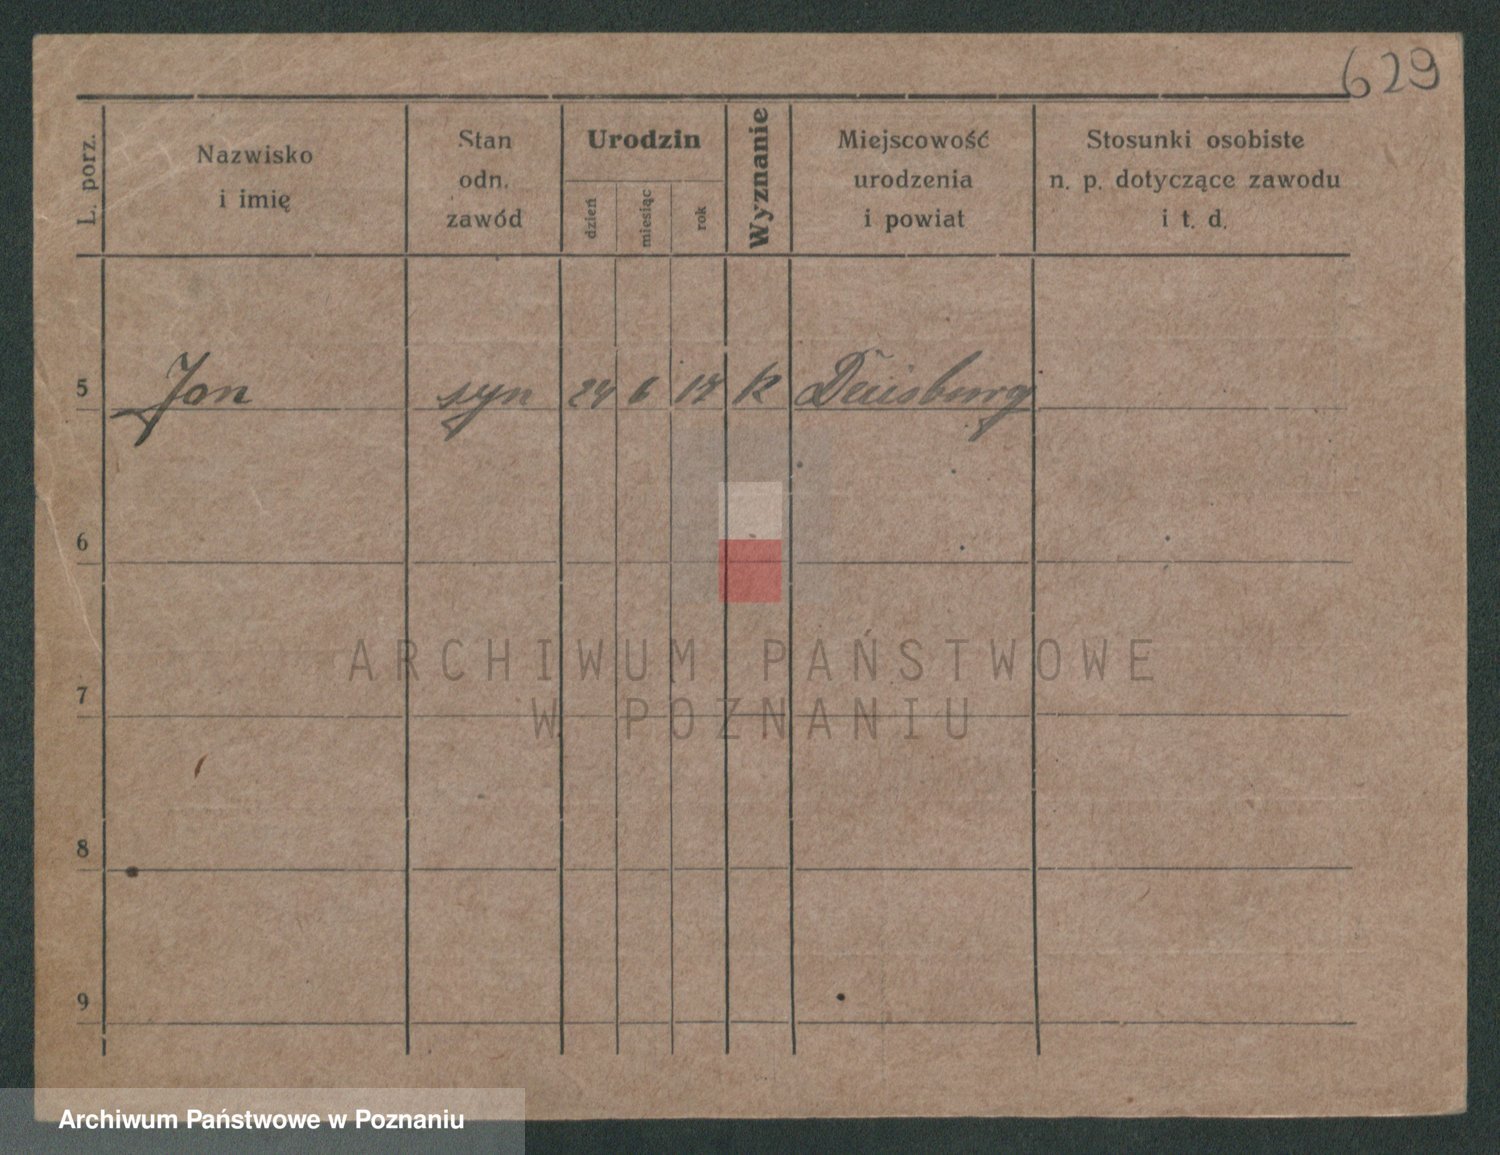 629
L. porz.
Nazwisko
i imię
Stan
odn.
zawód
Urodzin
dzień
miesiąc
rok
Wyznanie
Miejscowość
urodzenia
i powiat
Stosunki osobiste
n. p. dotyczące zawodu
i t. d.
5 Jan syn 24 6 17 k Duisburg
6
7
8
9
ARCHIWUM PAŃSTWOWE
W POZNANIU
Archiwum Państwowe w Poznaniu